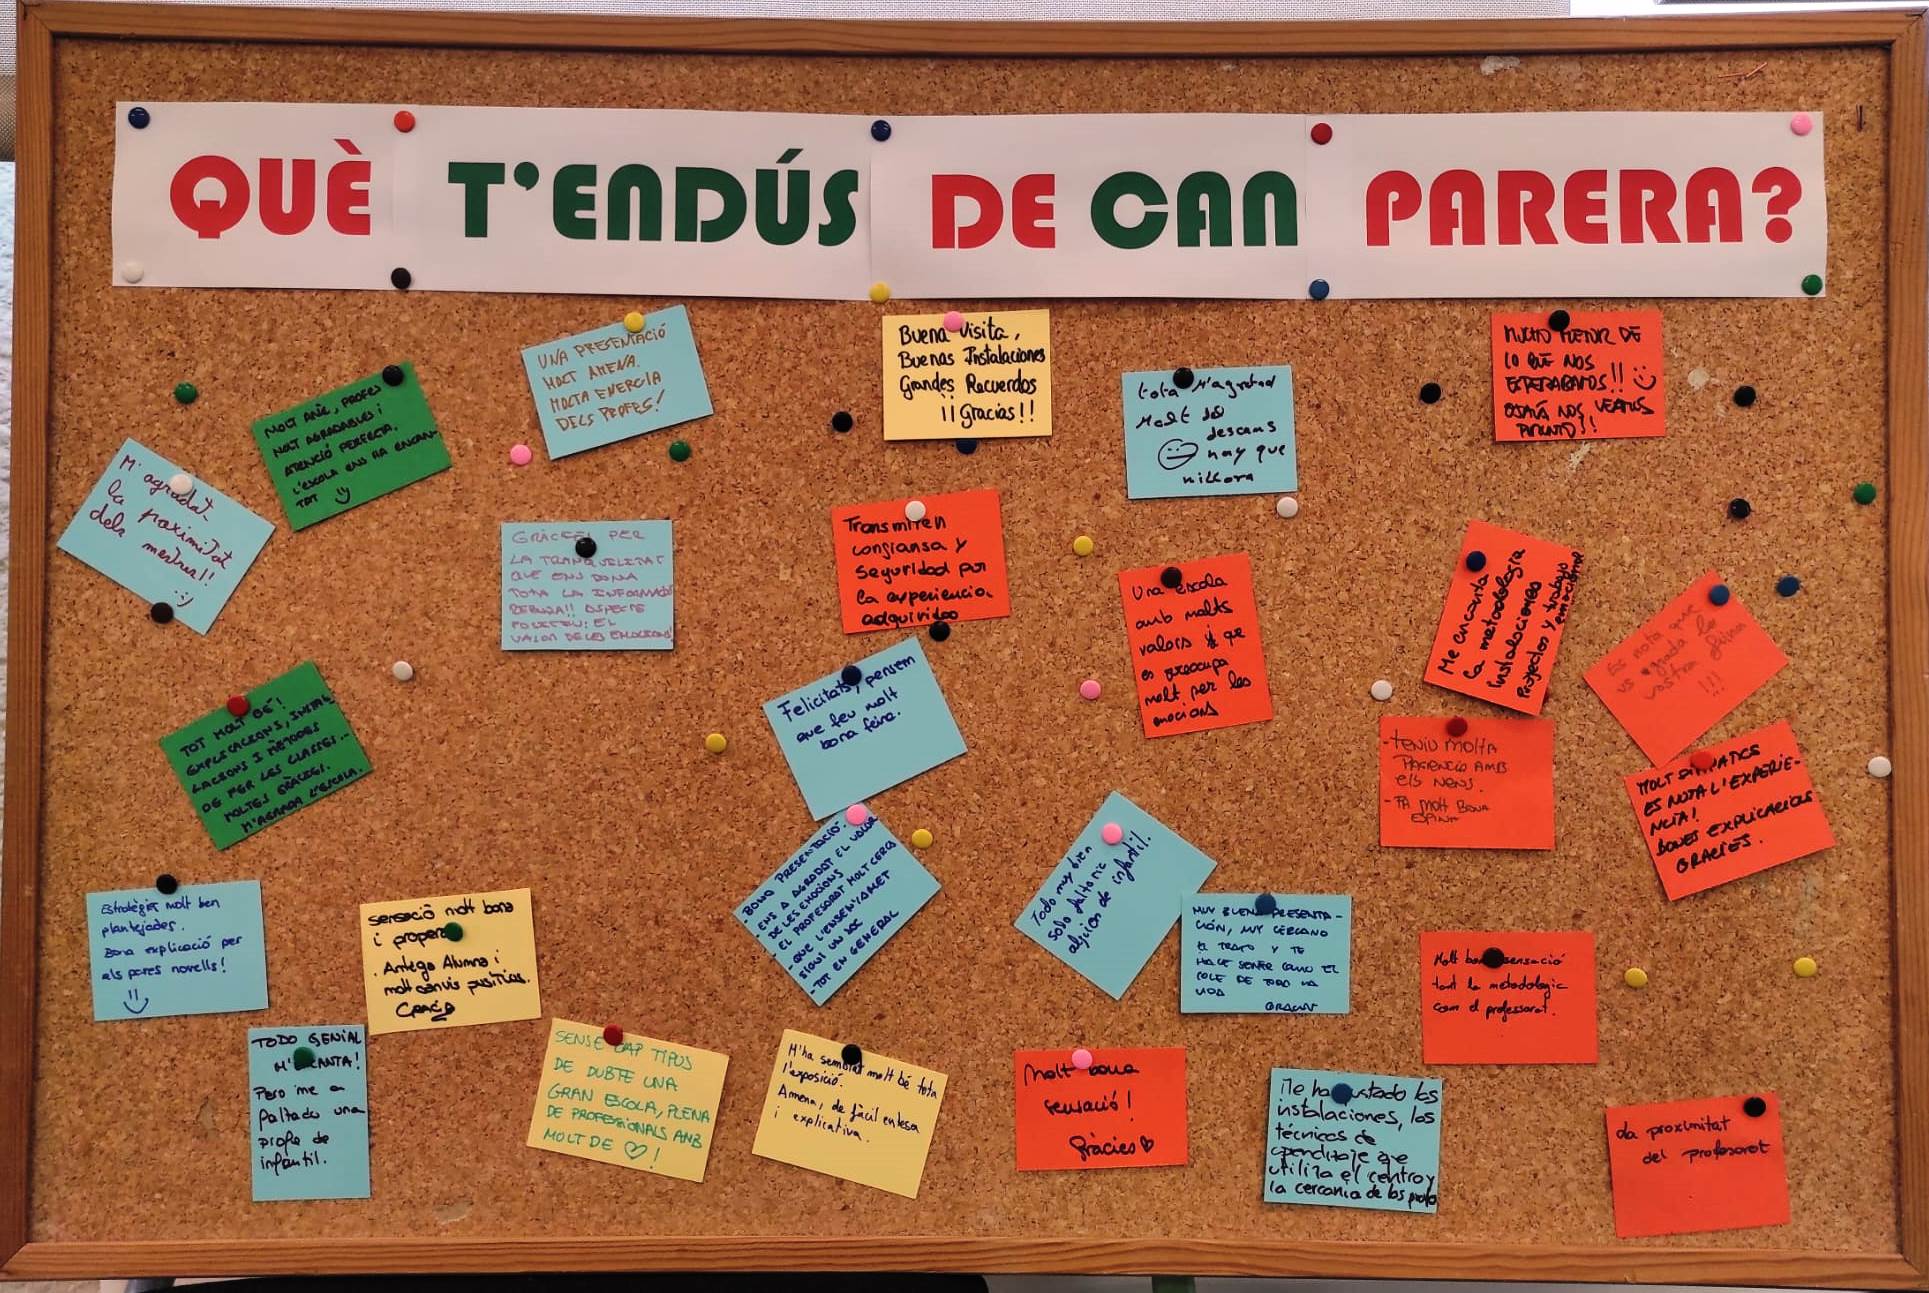 QUÈ T'ENDÚS DE CAN PARERA?
UNA PRESENTACIÓ
MOLT AMENA.
MOLTA ENERGIA
DELS PROFES!
Buena Visita,
Buenas Instalaciones
Grandes Recuerdos
¡¡Gracias!!
tota M'agratad
Molt
descans
hay que
millora
MUCHO MEJOR DE
LO QUE NOS
ESPERABAMOS!!
OJALÁ NOS VEAMOS
PRONTO!!
MOLT AMC, PROFES
MOLT AGRADABLES i
ATENCIÓ PERFECTA.
L'ESCOLA ENS HA ENCAN-
TAT
M'agradat
la proximitat
dels mestres!!
GRÀCIES PER
LA TRANQUILITAT
QUE ENS DONA
TOTA LA INFORMACIÓ
REBUDA!! ASPECTE
POSITIU: EL
VALOR DE LES EMOCIONS!
Transmiten
confiansa y
seguridad por
la experiencia
adquirida
Una escola
amb molts
valors i que
es preocupa
molt per les
emocions
Me encanta
la metodologia
instalaciones
Proyectos y trabajo
emocional
Es nota que
us agrada la
vostra feina
!!!
TOT MOLT BÉ!
EXPLICACIONS, INSTAL
LACIONS I MÈTODES
DE FER LES CLASSES...
MOLTES GRÀCIES.
M'AGRADA L'ESCOLA.
Felicitats, pensem
que feu molt
bona feina.
-TENIU MOLTA
PACIENCIA AMB
ELS NENS.
-FA MOLT BONA
ESPINA
MOLT SIMPATICS
ES NOTA L'EXPERIE-
NCIA!
BONES EXPLICACIONS
GRACIES.
- BONA PRESENTACIÓ.
- ENS A AGRADAT EL VALOR
DE LES EMOCIONS
- EL PROFESORAT MOLT CERCA
- QUE L'ENSENYAMET
SIGUI UN JOC
- TOT EN GENERAL
Todo muy bien
solo faltaria
alguien de infantil.
Estratègies molt ben
plantejades.
Bona explicació per
als pares novells!
sensació molt bona
i propera
. Antiga Alumna i
molt canvis positius.
Gràcies
MUY BUENA PRESENTA-
CIÓN, MUY CERCANO
EL TRATO Y TE
HACE SENTIR COMO EL
COLE DE TODA LA
VIDA
GRACIAS
Molt bona sensació
tant la metodologia
com el professorat.
TODO GENIAL
M'ENCANTA!
Pero me a
faltado una
profe de
infantil.
SENSE CAP TIPUS
DE DUBTE UNA
GRAN ESCOLA, PLENA
DE PROFESSIONALS AMB
MOLT DE ♡!
M'ha semblat molt bé tota
l'exposició.
Amena, de fàcil entesa
i explicativa.
Molt bona
sensació!
Gràcies♡
Me ha gustado las
instalaciones, las
técnicas de
aprendizaje que
utiliza el centro y
la cercania de los profes
La proximitat
del profesorat